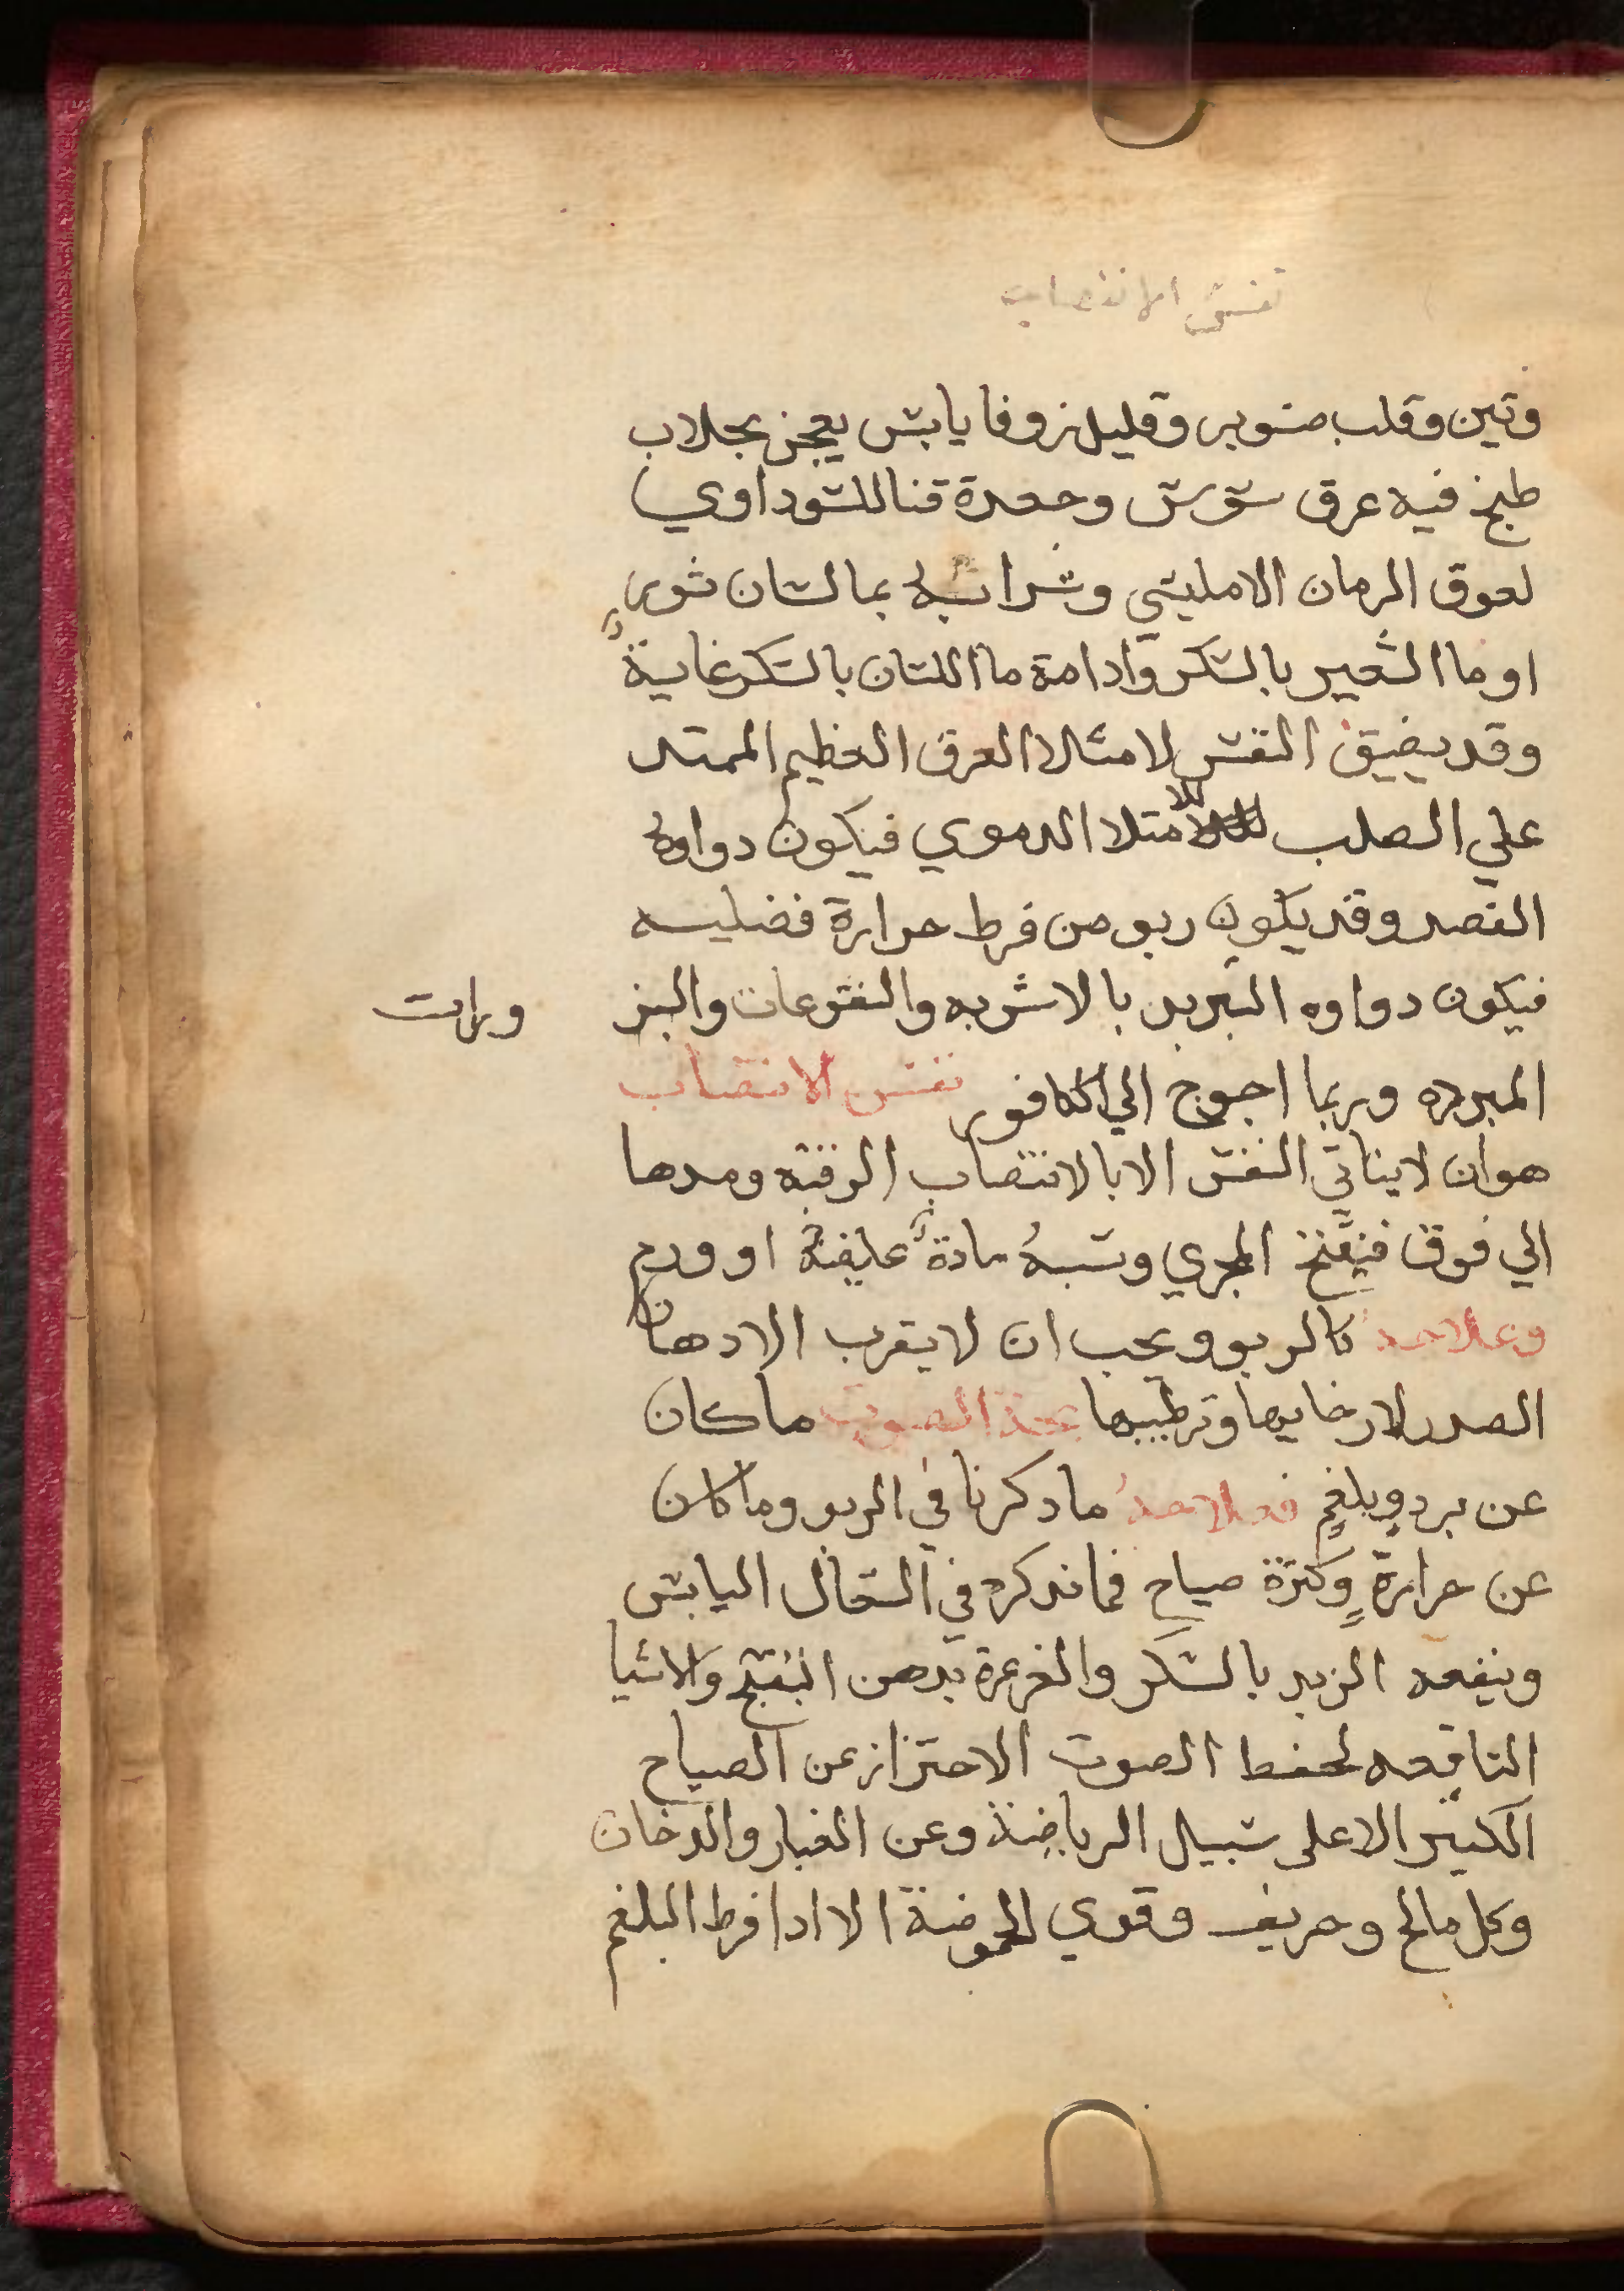 نفس الانتصاب
وتين وقلب صنوبر وقليل زوفا يابس يعجن بجلاب
طبخ فيه عرق سوس وجعدة قنا للسوداوي
لعوق الرمان الامليسي وشرابه بما لسان ثور
او ما الشعير بالسكر وادامة ما اللتان بالسكر غاية
وقد يضيق النفس لامتلا العرق العظيم الممتد
علي الصلب للامتلا الدموي فيكون دواوه
الفصد وقد يكون ربو من فرط حرارة فضليه
فيكون دواوه التبريد بالاشربه والنقوعات والبز ورات
المبرده وربما احوج الي الكافور نفس الانتصاب
هو ان لا يتاتي النفس الا بالانتصاب الرقبه ومدها
الي فوق فينفتح المجري وسببه مادة غليظة او ورم
وعلاجه كالربو ويجب ان لا يقرب الادهان
الصدر لارخايها وترطيبها بحة الصوت ما كان
عن برد وبلغم فعلاجه ما ذكرنا في الربو وما كان
عن حرارة وكثرة صياح فما نذكره في السعال اليابس
وينفعه الزبد بالسكر والغرغرة بدهن البنفسج والاشيا
النافعه لحفظ الصوت الاحتراز عن الصياح
الكثير الا علي سبيل الرياضة وعن الغبار والدخان
وكل مالح وحريف وقوي الحموضة الا اذا فرط البلغم